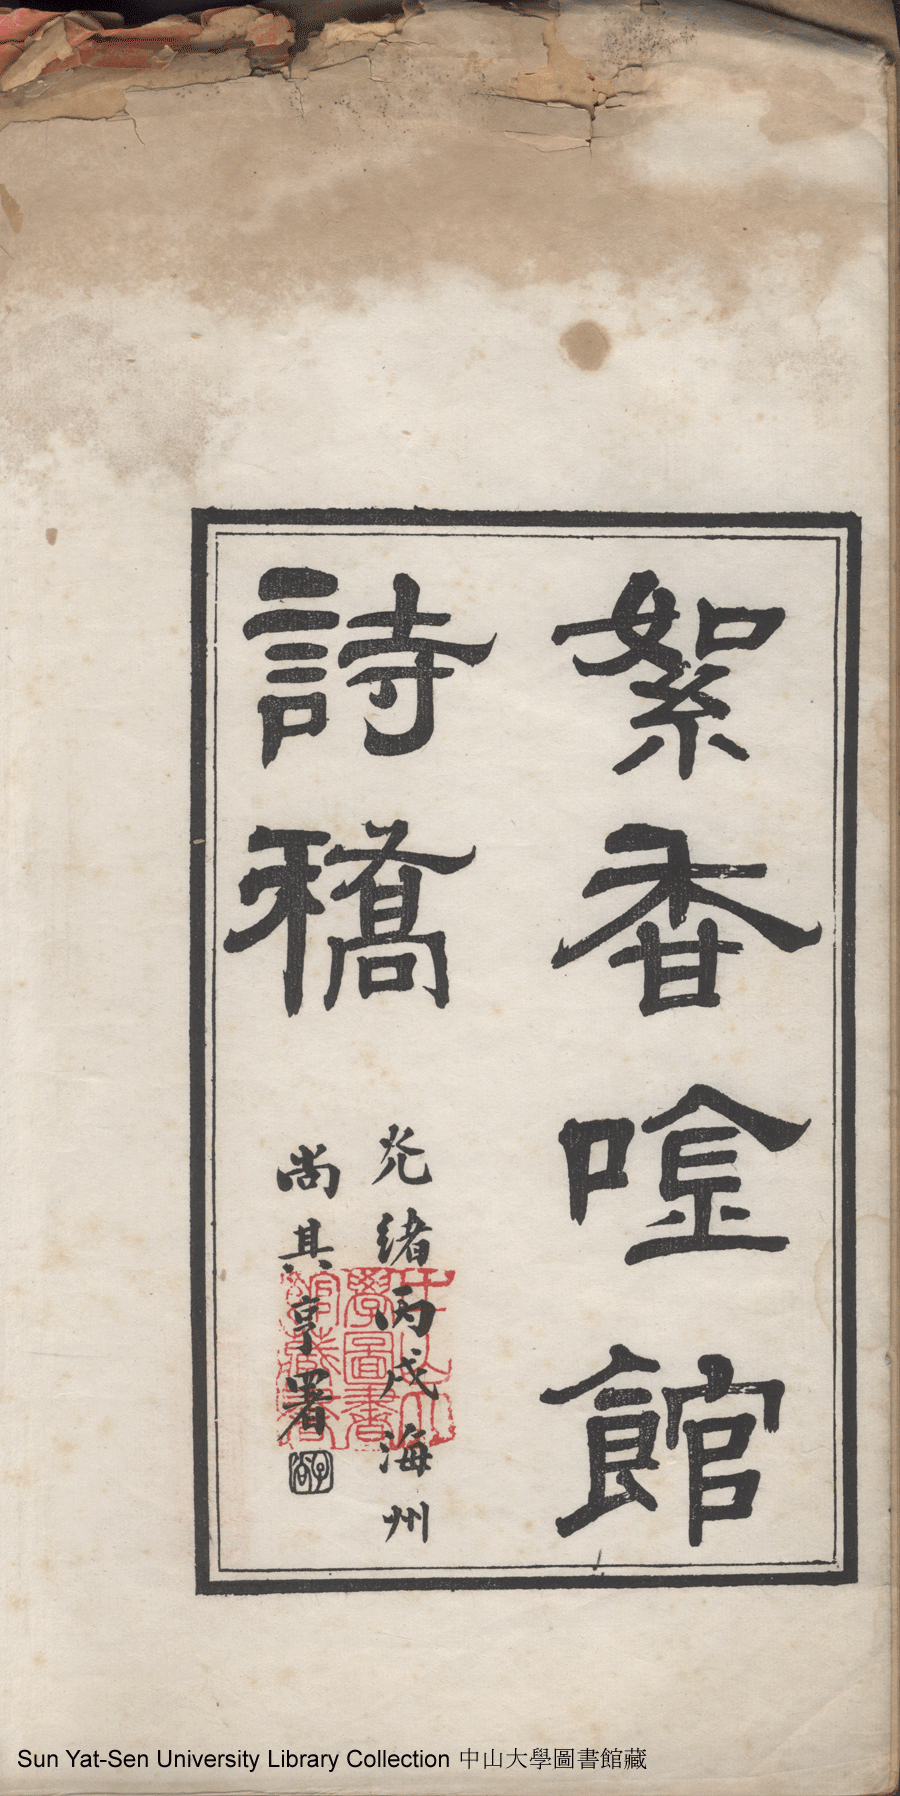 絮香唫館
詩稿
光緒丙戌海州
尚其亨署
中山大
學圖書
館藏書
Sun Yat-Sen University Library Collection 中山大學圖書館藏